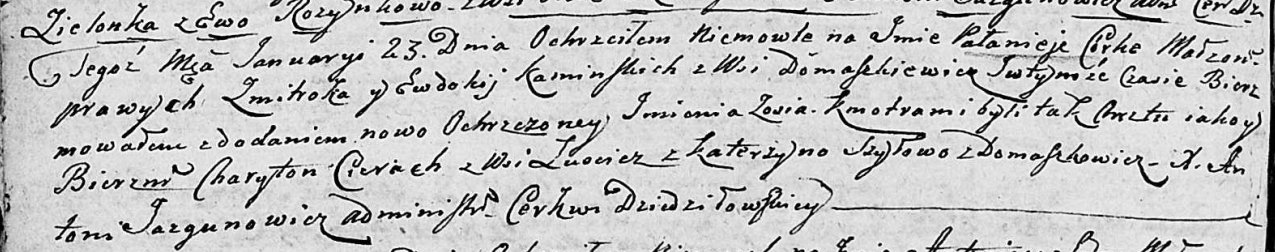 Zielonka z Ewo Rozynkowo z Wsi
Tegoż Mca Januaryi 23. Dnia Ochrzciłem Niemowle na Imie Pałanieje Corke Małżon.
prawych Zmitroka y Ewdokij Kaminskich z Wsi Domaszkiewicz Jwtymże Czasie Bierz
mowałem z dodaniem nowo Ochrzczoney Imienia Zosia. Kmotrami byli tak Chrztu iako y
Bierzm. Charyton Cierach z Wsi z Katerzyno Szyłowo z Domaszkowicz - X. An
toni Jazgunowicz Administr. Cerkwi Dziedziłowskiey